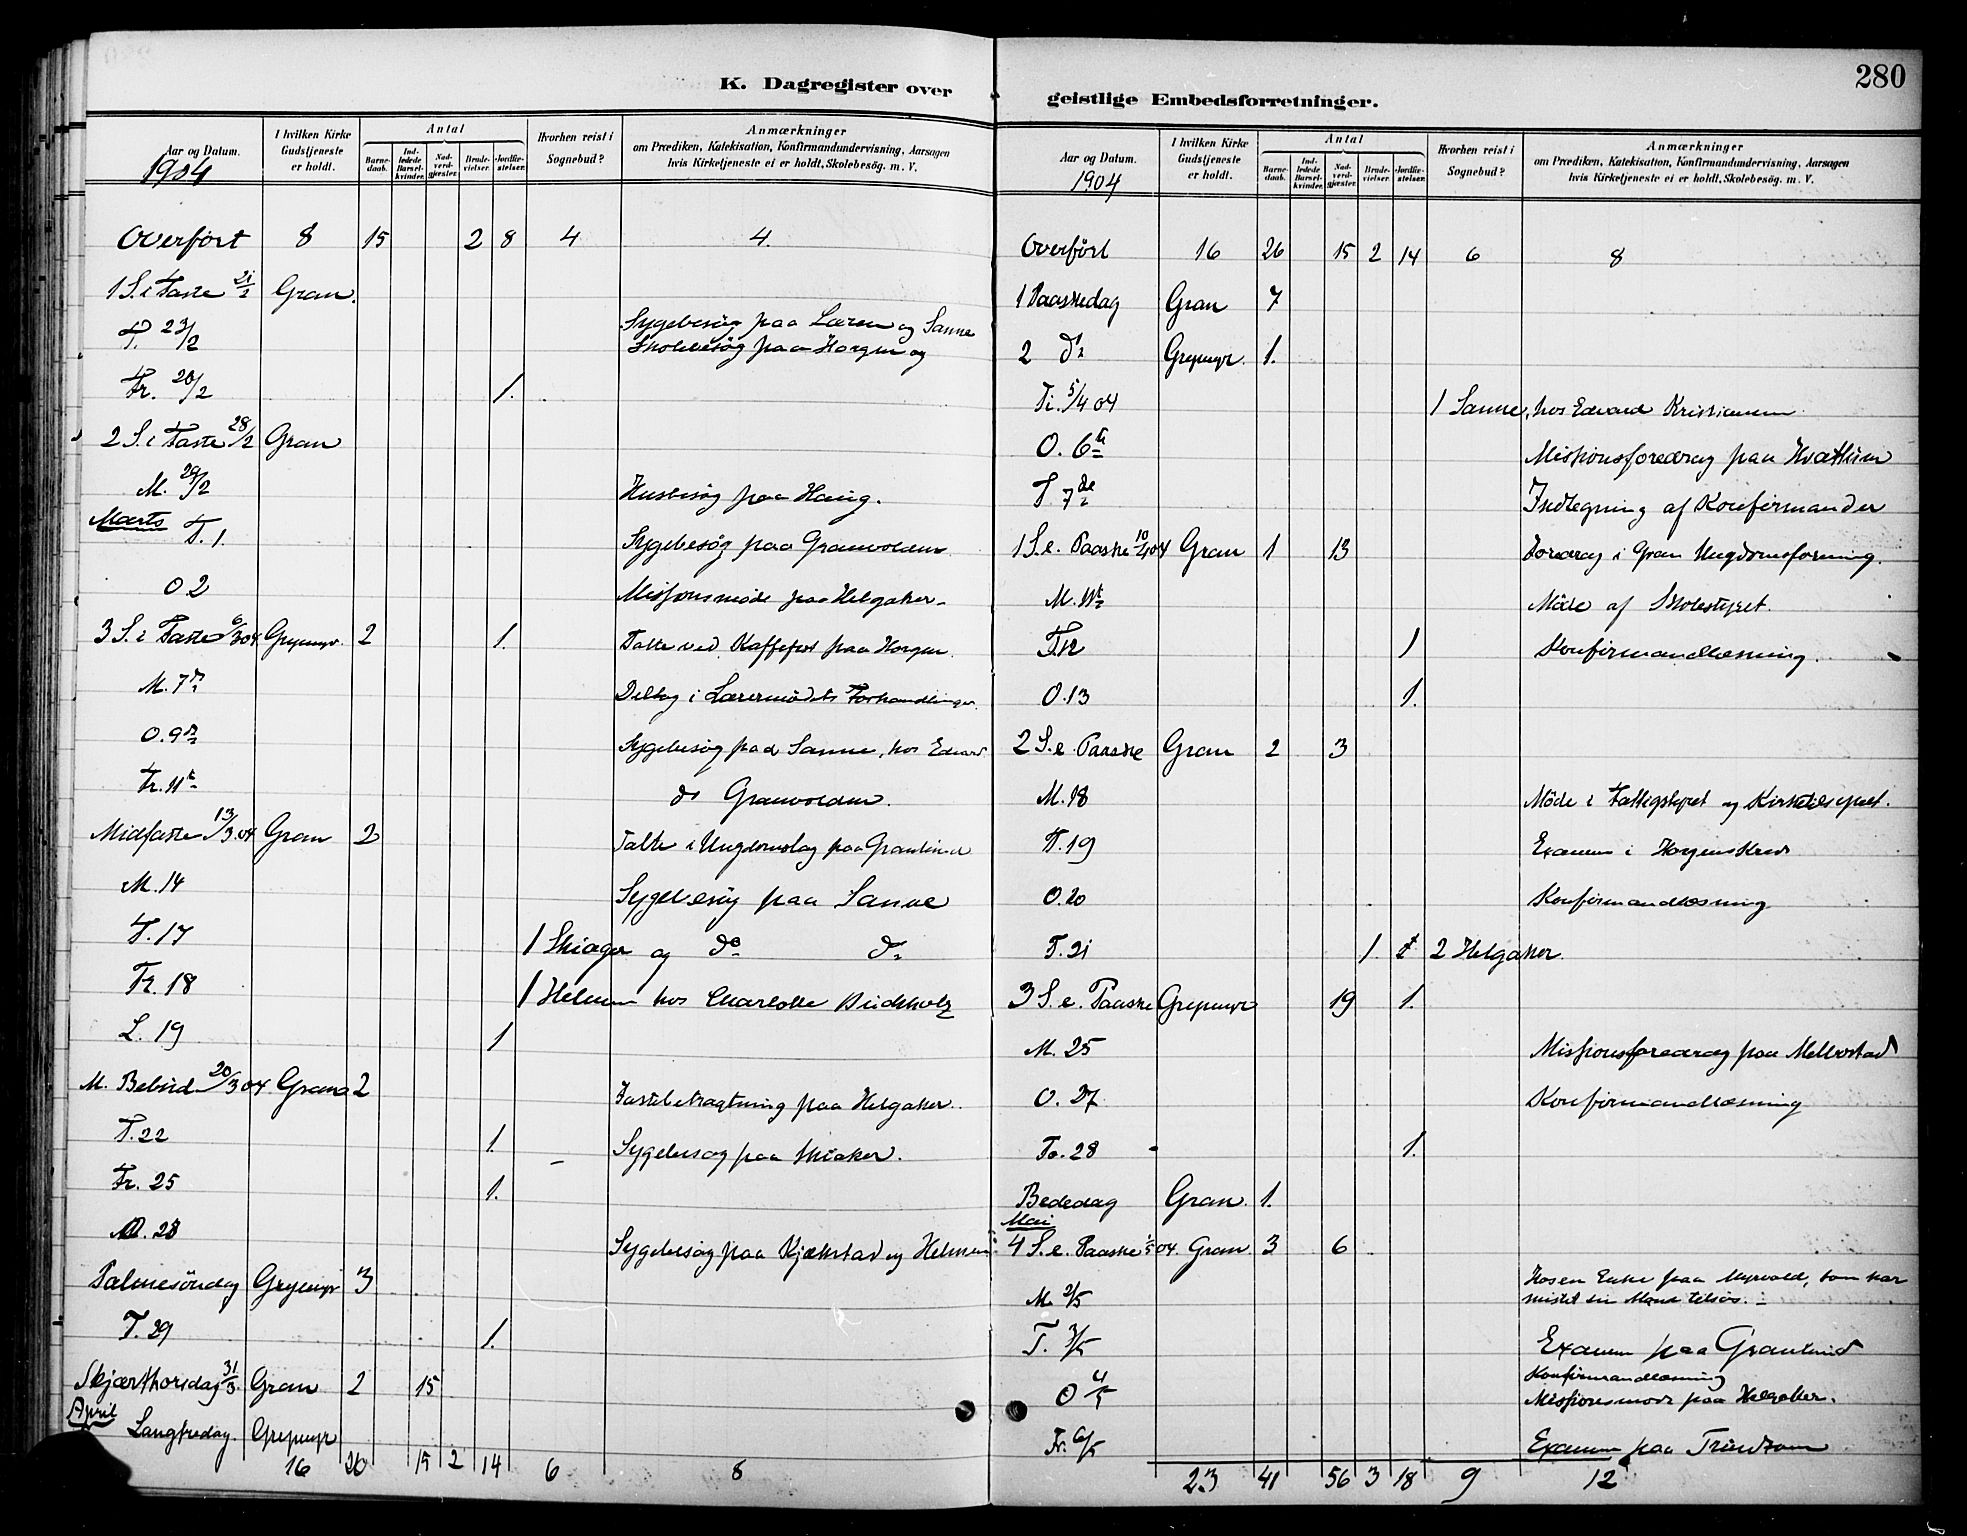 K. Dagregister over
Aar og Datum.
1904
I hvilken Kirke Gudstjeneste er holdt.
Antal
Barnedaab.
Indledede Barselkvinder.
Nadverdgjæster.
Brudevielser.
Jordfæstelser.
Hvorhen reist i Sognebud?
Anmærkninger
om Prædiken, Katekisation, Konfirmandundervisning, Aarsagen
hvis Kirketjeneste ei er holdt, Skolebesøg. m. V.
Overført 8 15 2 8 4 4
1 S. i Faste 21/2 Gran.
T. 23/2 Sygebesøg paa Læren og Sanne
Skolebesøg paa Horgen og
Fr. 26/2 1.
2 S. i Faste 28/2 Gran
M. 29/2 Husbesøg paa Haug.
Marts T. 1 Sygebesøg paa Granvolden
O 2 Missionsmøde paa Helgaker
3 S. i Faste 6/3 04 Grymyr. 2 1. Talte ved Kaffefest paa Horgen.
M. 7de Deltog i Lærermødets Forhandlinger.
O. 9de Sygebesøg paa Sanne, hos Edvard
Fr. 11te do Granvolden.
Midfaste 13/3.04 Gran 2 Talte i Ungdomslag paa Granlund
M. 14 Sygebesøg paa Sanne
T. 17 1 Skiager og do do
Fr. 18 1 Helmen hos Charlotte Buchholz
L. 19 1
M. Bebud 20/3 04. Gran 2 Fastebetragtning paa Helgaker.
T. 22 1. Sygebesøg paa Skiaker.
Fr. 25 1.
M. 28 Sygebesøg paa Kjækstad og Helmen
Palmesöndag Grymyr 3
T. 29 1.
Skjærthorsdag 31/3. Gran 2 15
April Langfredag. Grymyr
16 20 15 2 14 6 8
280
geistlige Embedsforretninger.
Aar og Datum.
1904
I hvilken Kirke Gudstjeneste er holdt.
Antal
Barnedaab.
Indledede Barselkvinder.
Nadverdgjæster.
Brudevielser.
Jordfæstelser.
Hvorhen reist i Sognebud?
Anmærkninger
om Prædiken, Katekisation, Konfirmandundervisning, Aarsagen
hvis Kirketjeneste ei er holdt, Skolebesøg. m. V.
Overført 16 26 15 2 14 6 8
1 Paaskedag Gran 7
2 do Grymyr. 1.
Ti. 5/4 04 1 Sanne, hos Edvard Kristiansen
O. 6te Missionsforedrag paa Hvattum
T 7de Indtegning af Konfirmander
1 S. e. Paaske 10/4 04 Gran 1 13 Foredrag i Gran Ungdomsforening.
M. 11te Møde af Skolestyret.
T. 12 1 Konfirmandlæsning.
O. 13 1.
2 S. e. Paaske Gran 2 3
M. 18 Møde i Fattigstyret og Kirketilsynet.
T. 19 Examen i Horgens Kreds
O. 20 Konfirmandlæsning
T. 21 1. 2 Helgaker.
3 S. e. Paaske Grymyr 19 1.
M. 25 Missionsforedrag paa Mellerstad
O. 27 Konfirmandlæsning
To. 28 1.
Bededag Gran. 1.
Mai
4 S. e. Paaske 1/5 04. Gran 3 6
M. 2/5 Hos en Enke paa Myrvold, som har
mistet sin Mand tilsøs.
T. 3/5 Examen paa Granlund
Konfirmandlæsning
O 4/5 Missionsmøde paa Helgaker.
Fr. 6/5 Examen paa
23 41 56 3 18 9 12